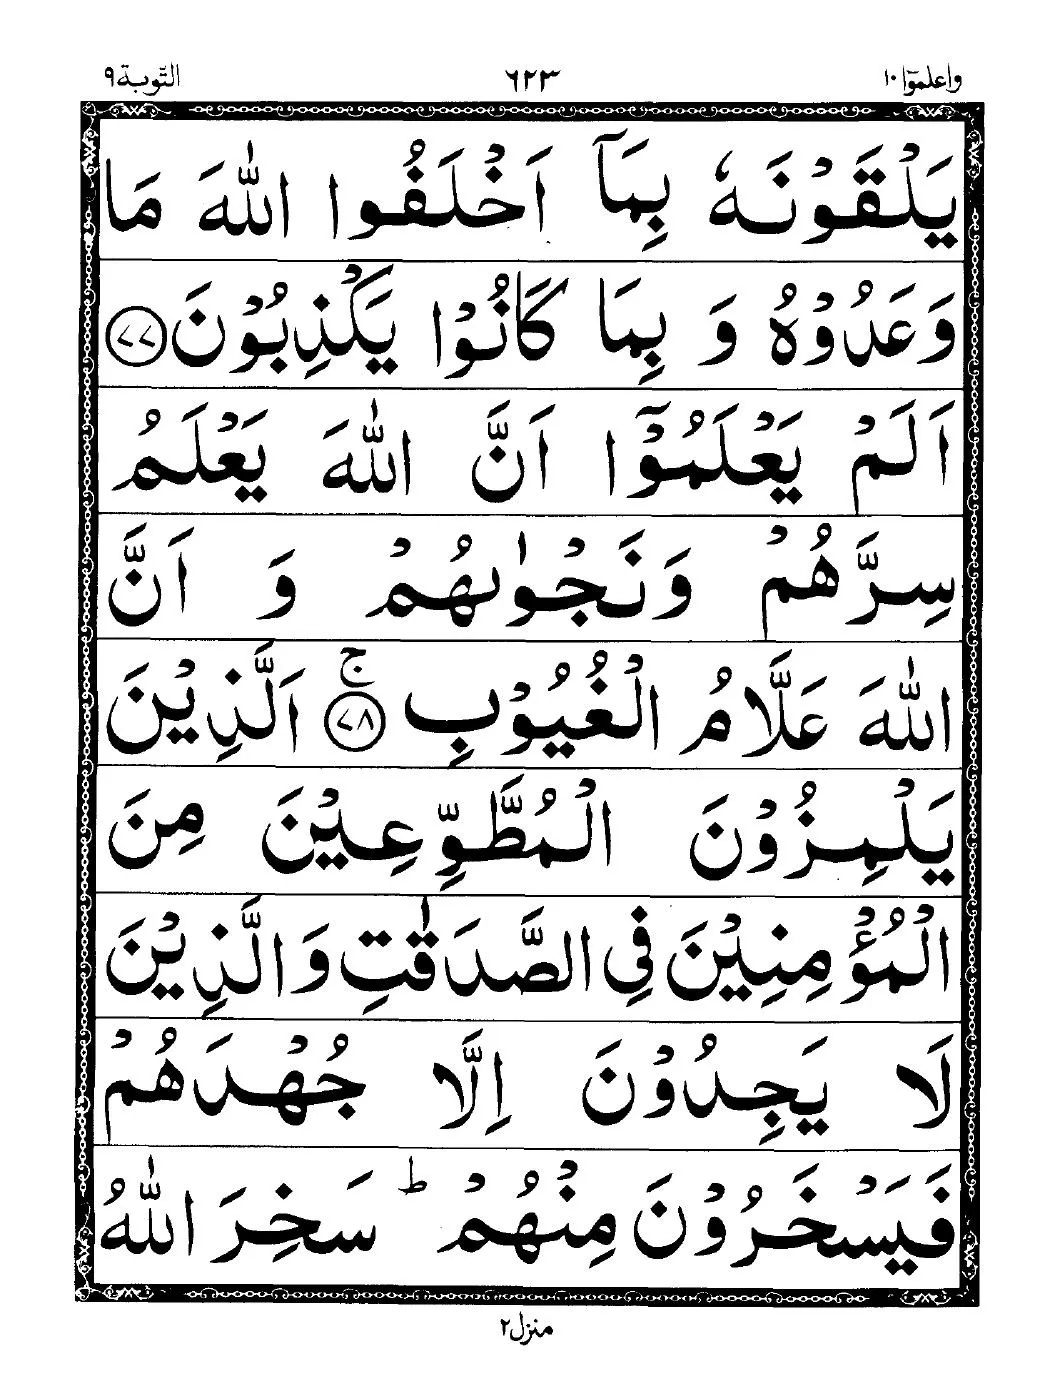 واعلموٓا ١٠ ٦٢٣ التّوبة ٩
يَلْقَوْنَهٗ بِمَاۤ اَخْلَفُوا اللّٰهَ مَا
وَعَدُوْهُ وَ بِمَا كَانُوْا يَكْذِبُوْنَ ﴿٧٧﴾
اَلَمْ يَعْلَمُوْۤا اَنَّ اللّٰهَ يَعْلَمُ
سِرَّهُمْ وَنَجْوٰىهُمْ وَ اَنَّ
اللّٰهَ عَلَّامُ الْغُيُوْبِ ﴿٧٨﴾ۚ اَلَّذِيْنَ
يَلْمِزُوْنَ الْمُطَّوِّعِيْنَ مِنَ
الْمُؤْمِنِيْنَ فِي الصَّدَقٰتِ وَالَّذِيْنَ
لَا يَجِدُوْنَ اِلَّا جُهْدَهُمْ
فَيَسْخَرُوْنَ مِنْهُمْ ؕ سَخِرَ اللّٰهُ
منزل ٢